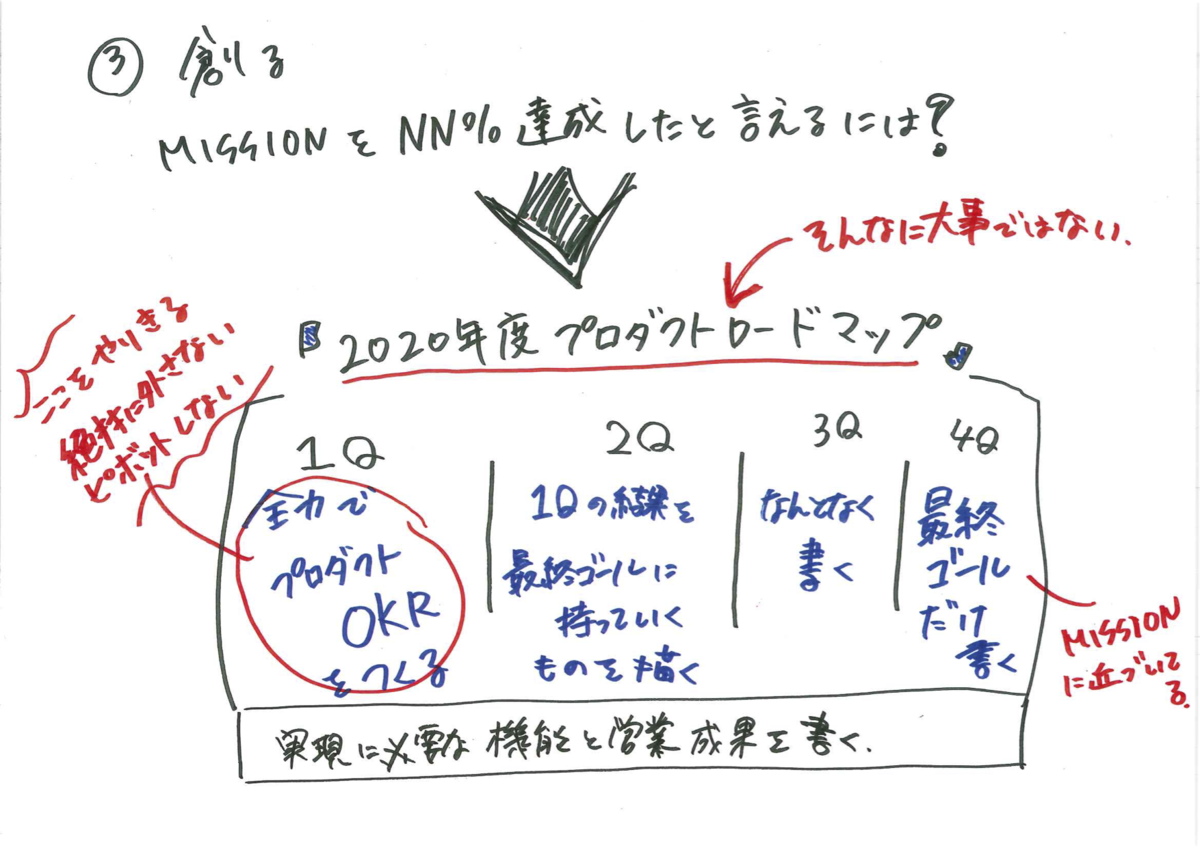 ③ 創る
MISSIONを NN%達成したと言えるには?
そんなに大事ではない.
2020年度プロダクトロードマップ
ここをやりきる
絶対に外さない
ピボットしない
1Q
全力で
プロダクト
OKR
をつくる
2Q
1Qの結果を
最終ゴールに
持っていく
ものを描く
3Q
なんとなく
書く
4Q
最終
ゴール
だけ
書く
MISSION
に近づいて
る.
実現に必要な機能と営業成果を書く.